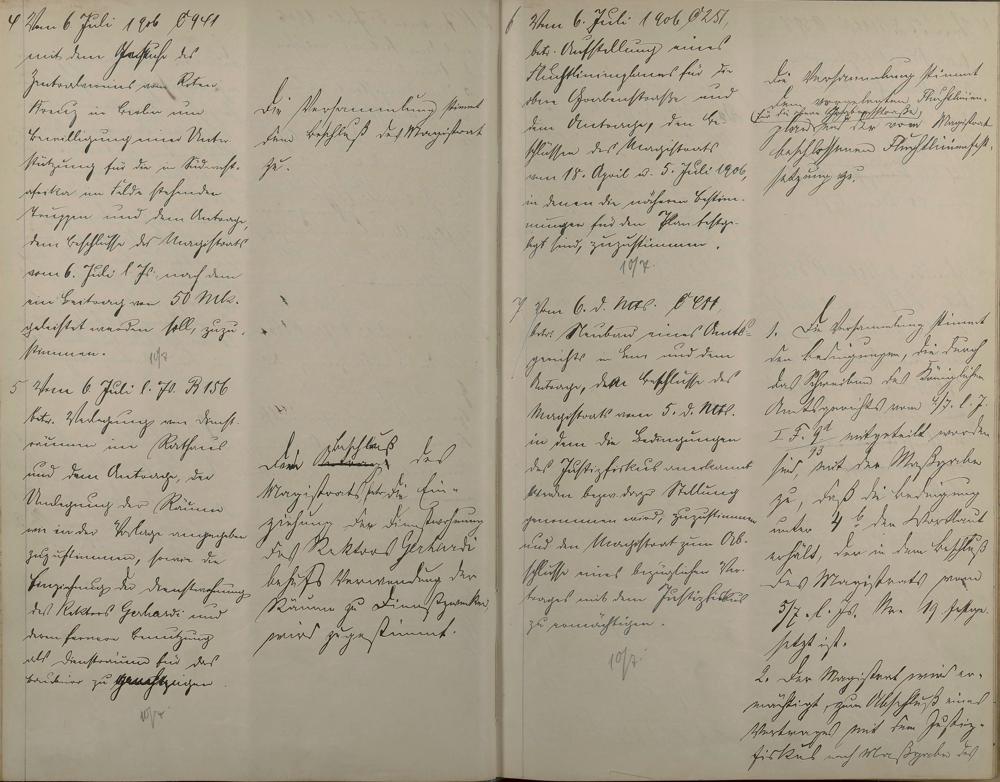 4 Vom 6 Juli 1906 C 941
mit dem Gesuche des
Zentralcomites vom Roten
Kreuz in Berlin um
Bewilligung einer Unter-
stützung für die in Südwest-
afrika im Felde stehenden
Truppen und dem Antrage,
dem Beschlusse des Magistrats
vom 6. Juli l. Js., nach dem
ein Beitrag von 50 Mk.
geleistet werden soll, zuzu-
stimmen.
10/7
Die Versammlung stimmt
dem Beschluß des Magistrat
zu.
5 Vom 6 Juli l. Js. B 156
betr. Verlegung von Dienst-
räumen im Rathaus
und dem Antrage, der
Verlegung der Räume
wie in der Vorlage angegeben
zuzustimmen, sowie die
Einziehung der Dienstwohnung
des Rektors Gerhardi und
deren fernere Benutzung
als Diensträume für das
zu genehmigen.
10/7
Dem Beschluss des
Magistrats betr. die Ein-
ziehung der Dienstwohnung
des Rektors Gerhardi
behufs Verwendung der
Räume zu Dienstzwecken
wird zugestimmt.
6 Vom 6. Juli 1906 C 251,
betr. Aufstellung eines
Fluchtlinienplanes für die
obere Grabenstraße und
dem Antrage, den Be-
schlüssen des Magistrats
vom 18. April u. 5. Juli 1906,
in denen die näheren Bestim-
mungen für den Plan festge-
legt sind, zuzustimmen.
10/7.
Die Versammlung stimmt
dem vorgelegten Fluchtlinien-
(für die obere Grabenstraße)
plan und der vom Magistrat
beschlossenen Fluchtlinienfest-
setzung zu.
7 Vom 6. d. Mts. C 411
betr. Neubau eines Amts-
gerichts in und dem
Antrage, dem Beschlusse des
Magistrats vom 5. d. Mts.
in dem die Bedingungen
des Justizfiskus anerkannt
werden bezw. dazu Stellung
genommen wird, zuzustimmen
und den Magistrat zum Ab-
schlusse eines bezüglichen Ver-
trages mit dem Justizfiskus
zu ermächtigen.
10/7.
1. Die Versammlung stimmt
den Bedingungen, die durch
das Schreiben des Königlichen
Amtsgerichts vom 4/7. l. J.
I F. 9d/13 mitgeteilt worden
sind, mit der Maßgabe
zu, daß die Bedingung
unter 4 b den Wortlaut
erhält, der in dem Beschluß
des Magistrats vom
5/7. l. Js. Nr. 19 festge-
setzt ist.
2. Der Magistrat wird er-
mächtigt, zum Abschluß eines
Vertrages mit dem Justiz-
fiskus nach Maßgabe des